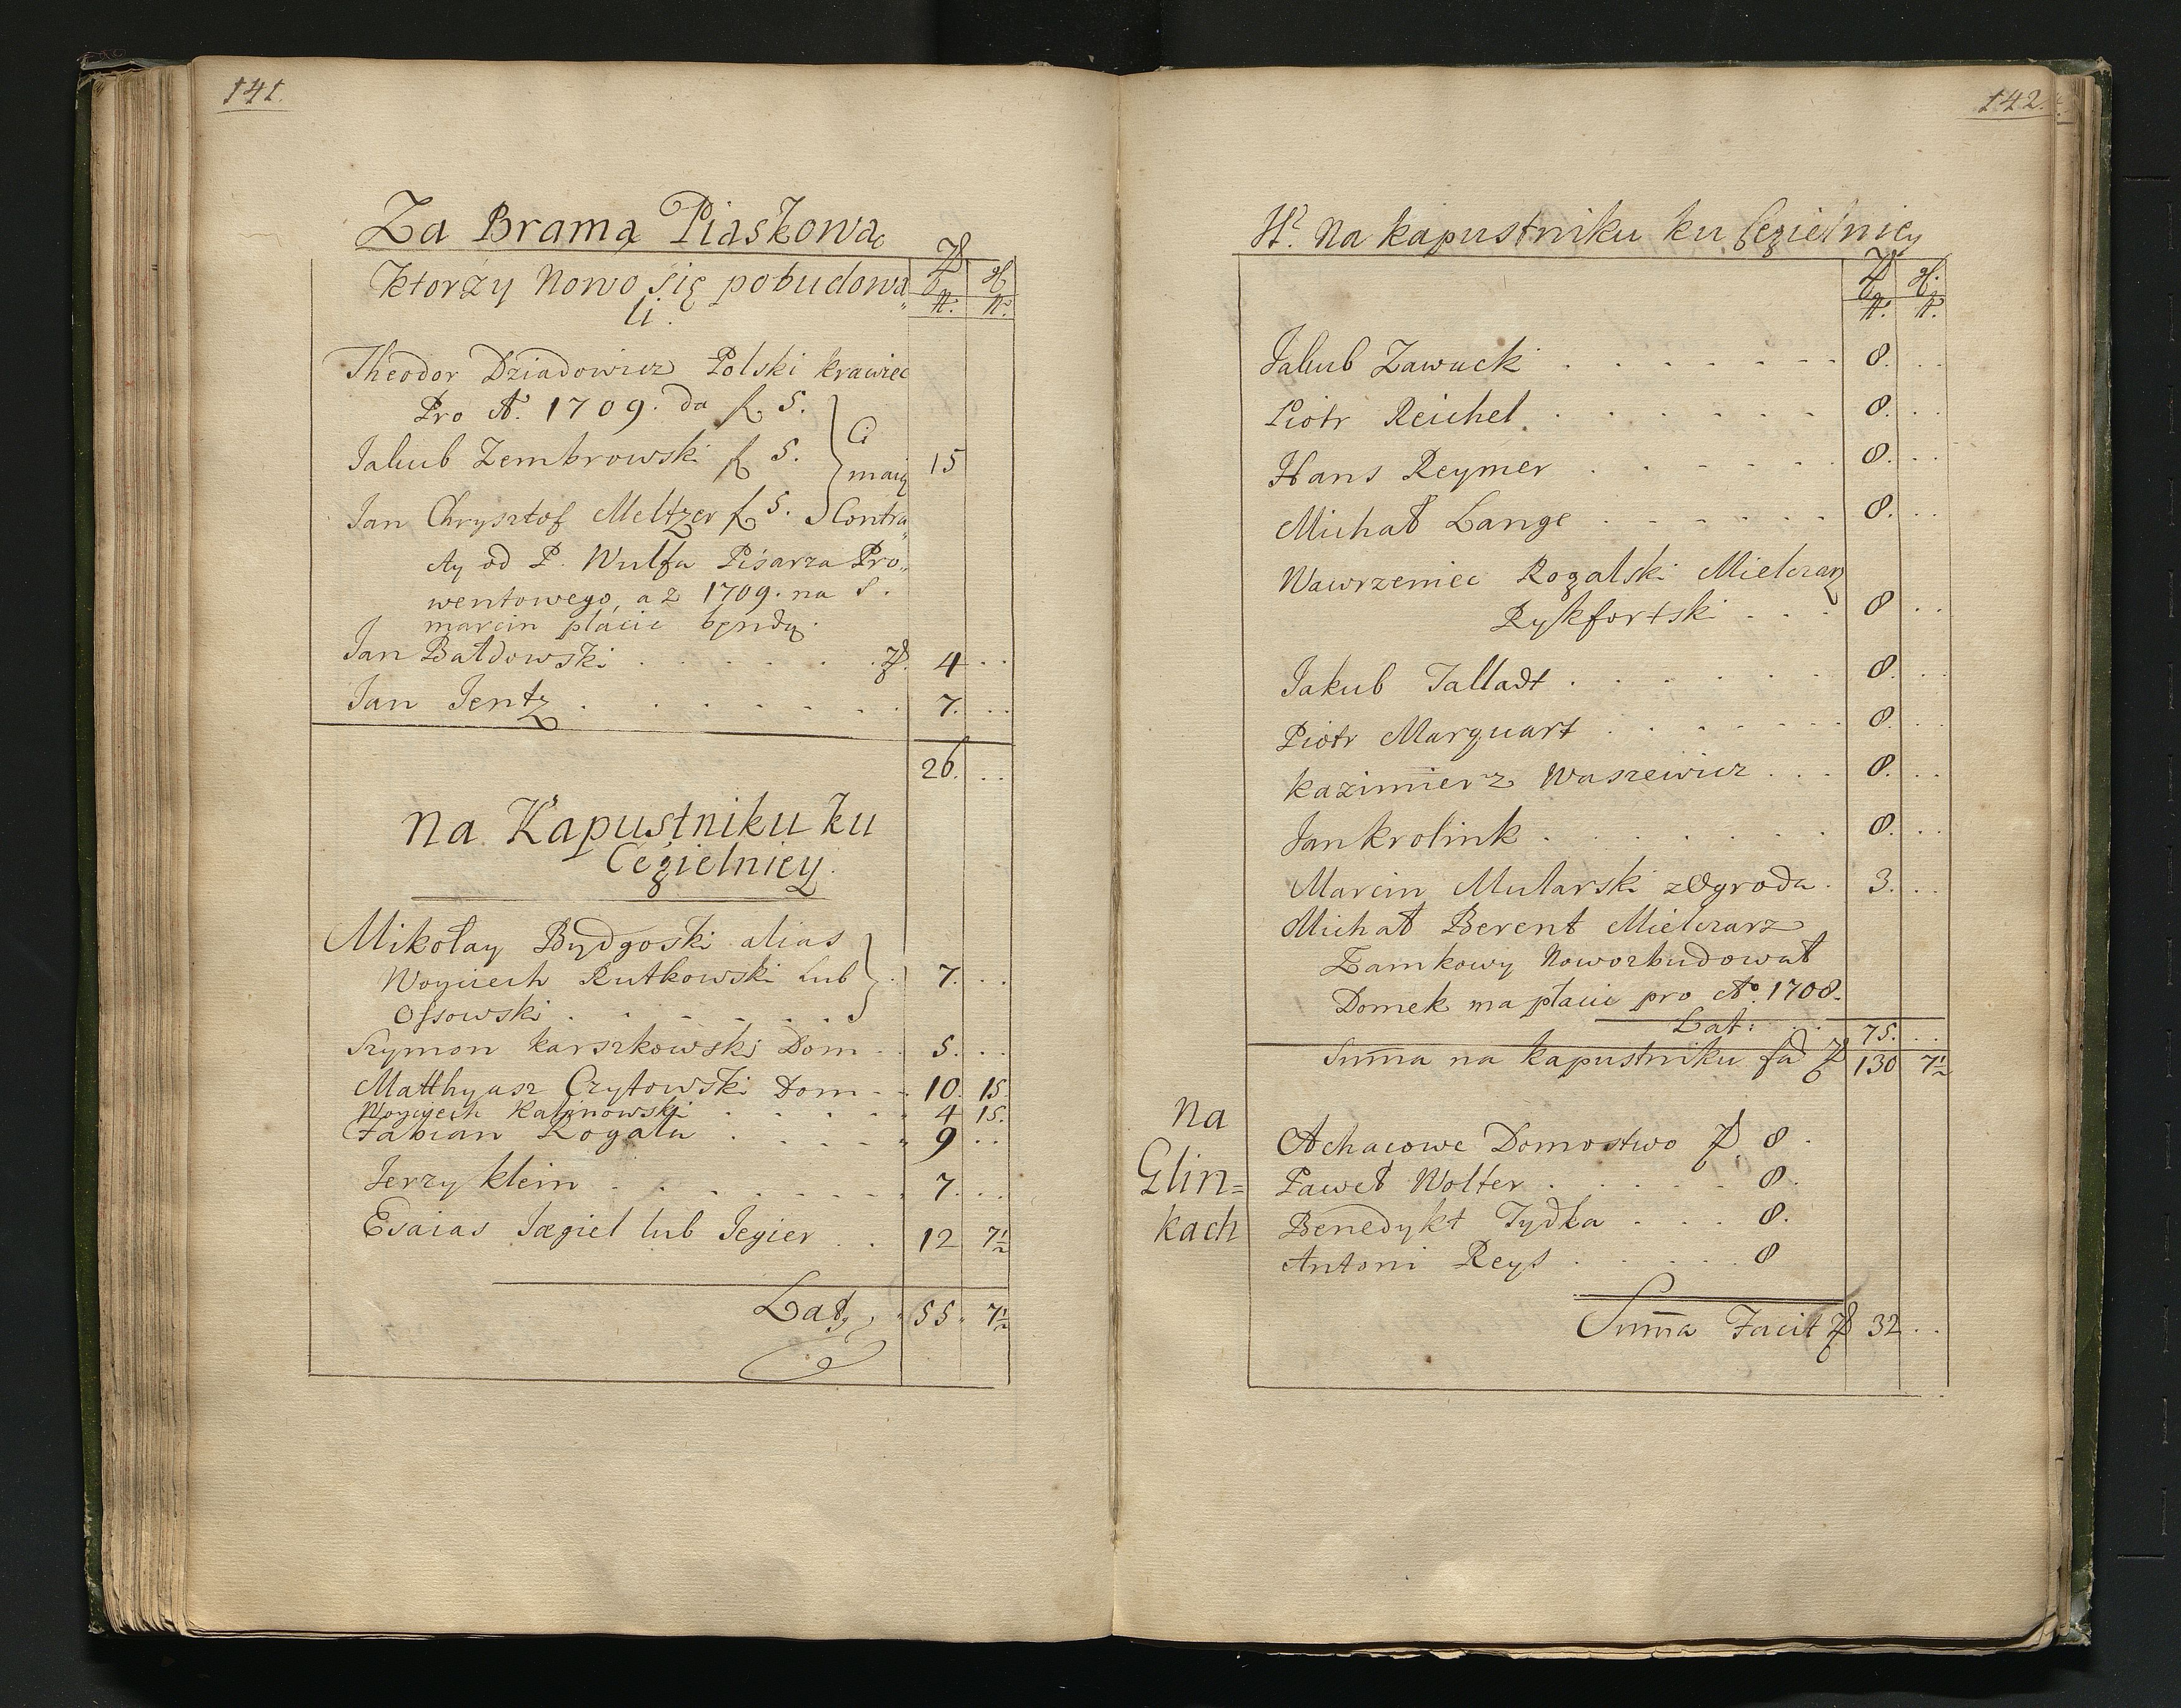 141.
Za Bramą Piaskową
ktorzy Nowo się pobudowa„
li.
Theodor Dziadowicz Polski krawiec
Pro Aº. 1709. da f. 5.
Ci
Jakub Zembrowski f 5. 15
maią
Jan Chrysztof Meltzer f 5. Contra„
cty od P. Wulfa Pisarza Pro„
wentowego, a z 1709. na S.
marcin płacic będą.
Jan Bałdowski . . . . . . . 4 . .
Jan Jentz . . . . . . . 7. . .
26. . .
Na Kapustniku ku
Cegielnicy.
Mikołay Bydgoski alias
Woyciech Rutkowski Lub 7. . .
Ossowski . . . . . . .
Szymon karszkowski Dom - . 5. . .
Matthyasz Czytowski Dom - . 10. 15.
Woyciech Kalinowski . . . . . 4 15.
Fabian Rogala . . . . . 9 . .
Jerzy klein . . . . . . . 7. . .
Esaias Jægiel lub Jegier . . 12 7½
Lat. 55. 7½
142.
Na kapustniku ku Cegielnicy
Jakub Zawacki . . . . . . . 8. . .
Piotr Reichel . . . . . . 8. . .
Hans Reymer . . . . . . 8. . .
Michał Lange . . . . . . 8. . .
Wawrzeniec Rogalski Mielcarz
Rykfortski . . . 8 . .
Jakub Talladt . . . . . . 8. . .
Piotr Marquart . . . . . . 8. . .
kazimierz Waszewicz . . . 8. . .
Jan krolink . . . . . . . 8. . .
Marcin Mularski z Ogroda . 3. . .
Michał Berent Mielcarz
Zamkowy Nowozbudował
Domek ma płacic pro Aº. 1708.
Lat: . . . 75. . .
Sum̄a na kapustniku fa 130 7½
Na
Achacowe Domostwo 8 .
Glin=
Paweł Wolter . . . . . 8.
kach
Benedykt Tydka . . . 8.
Antoni Reys . . . . . 8
Sum̄a Facit 32 . .